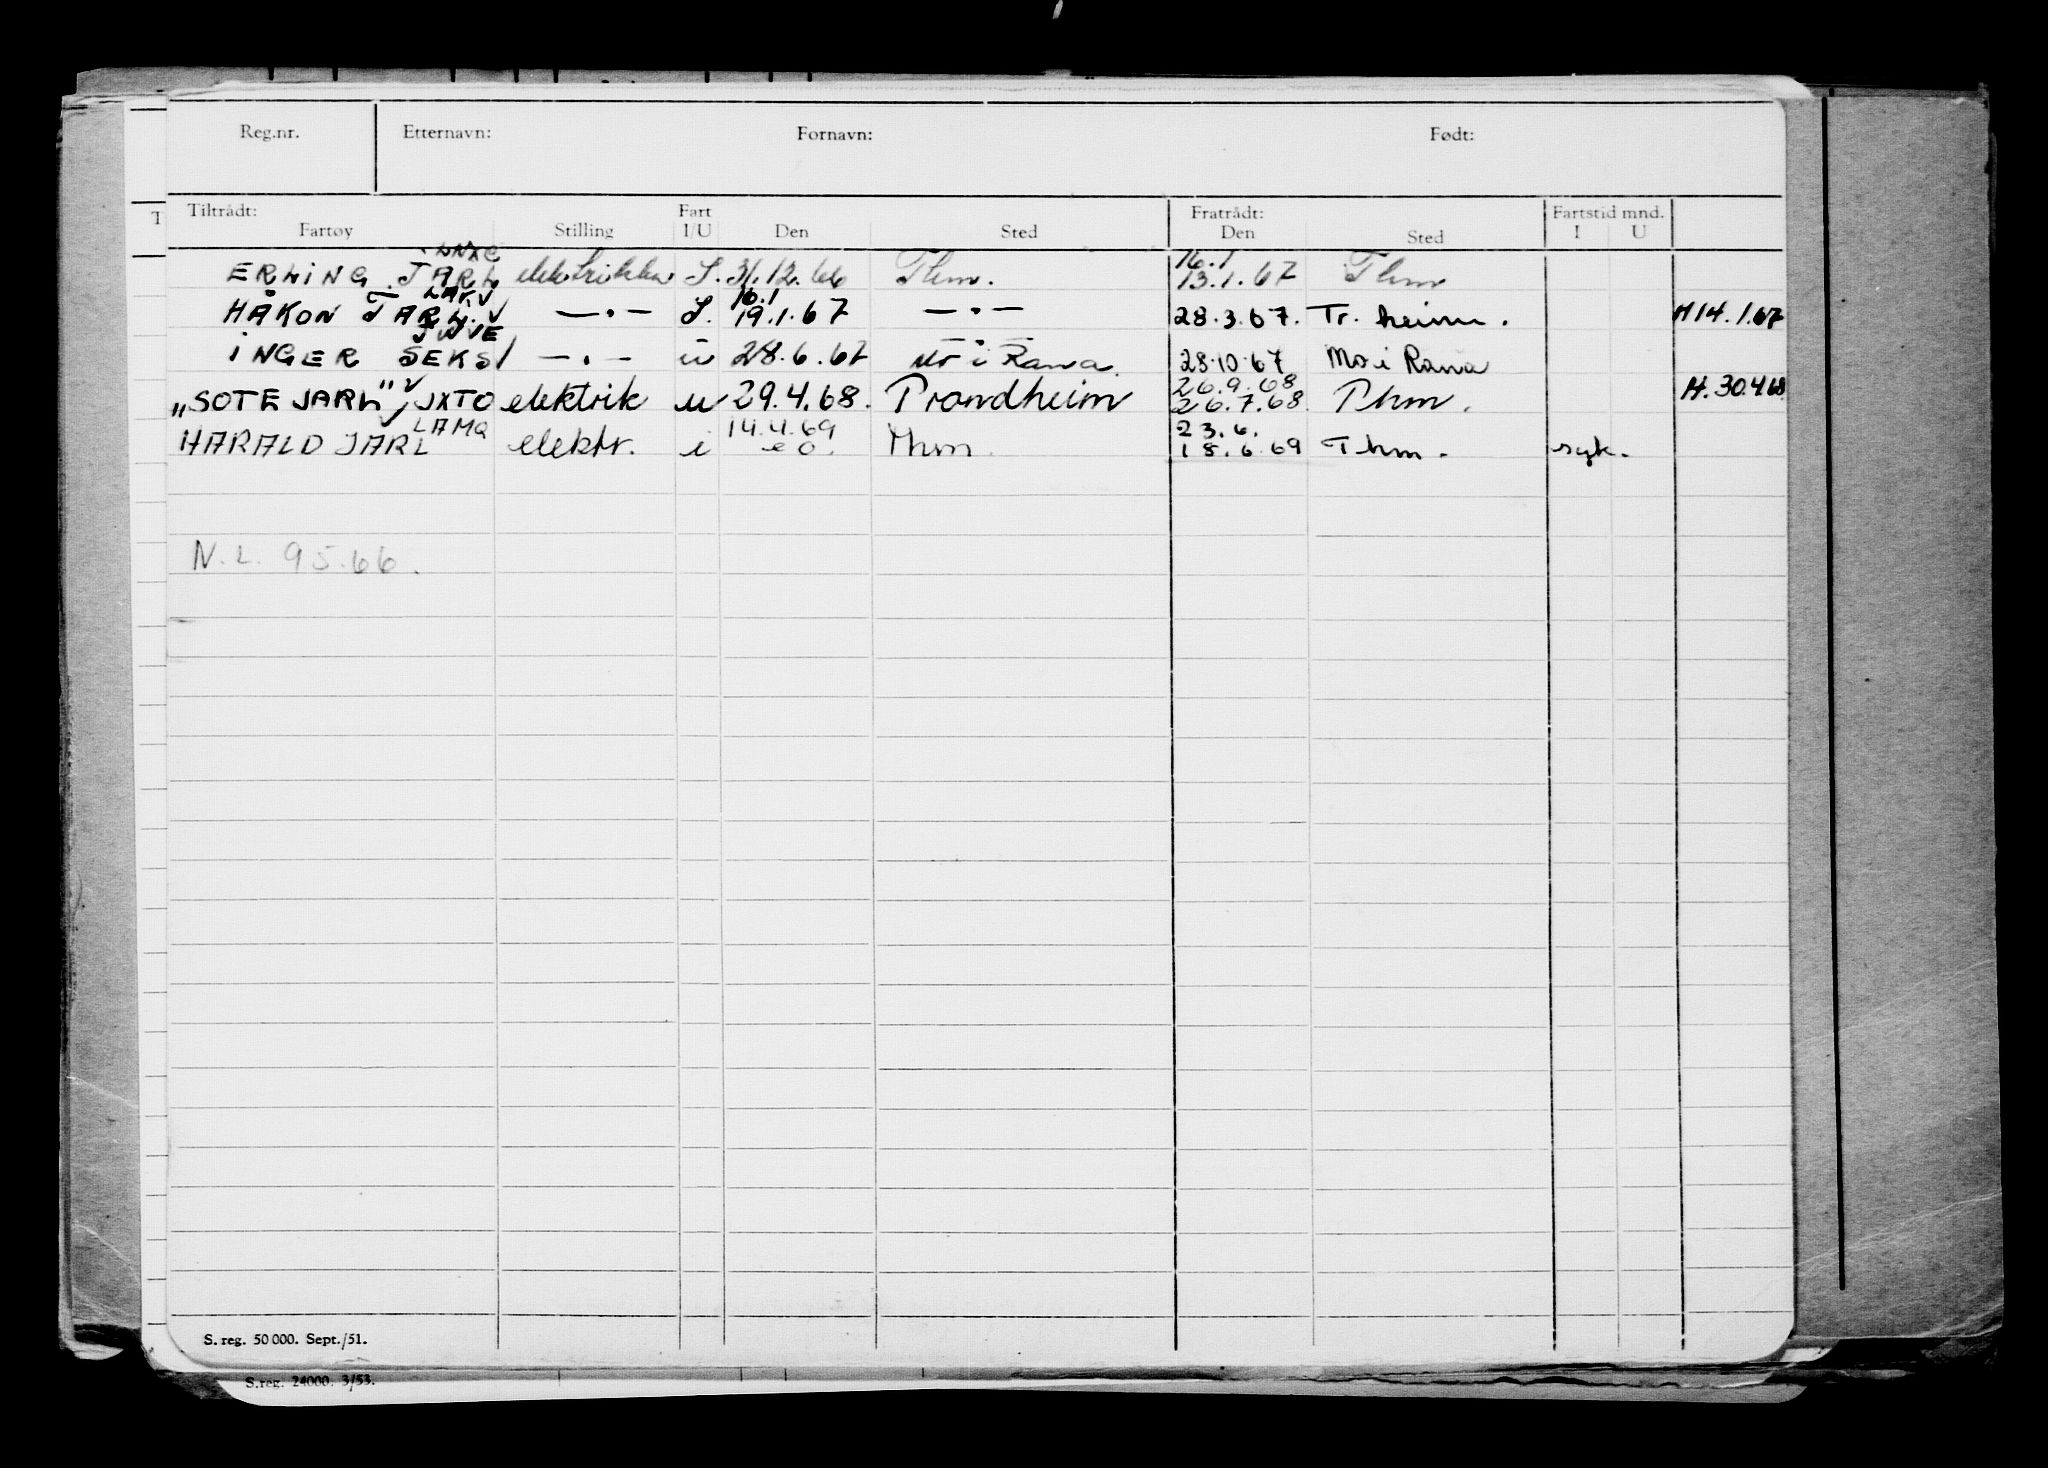 Reg.nr. Etternavn: Fornavn: Født:
Tiltrådt: Fart Fratrådt: Fartstid mnd.
Fartøy Stilling I/U Den Sted Den Sted I U
LNXC 16.1
ERLING JARL elektriker I. 31.12.66 Thm. 13.1.67 Thm
LAKV 16.1
HÅKON JARL. —.— I. 19.1.67 —.— 28.3.67. Tr.heim. H 14.1.67
JWVE
INGER SEKS —.— u 28.6.67 Mo i Rana. 28.10.67 Mo i Rana
26.9.68
„SOTE JARL" JXTO elektrik u 29.4.68. Trondheim 26.7.68. Thm. H. 30.4.68
LAMQ 14.4.69 23.6.
HARALD JARL elektr. i eo. Thm. 18.6.69 Thm. syk.
N.L. 95.66.
S. reg. 50 000. Sept./51.
S. reg. 24000. 3/53.